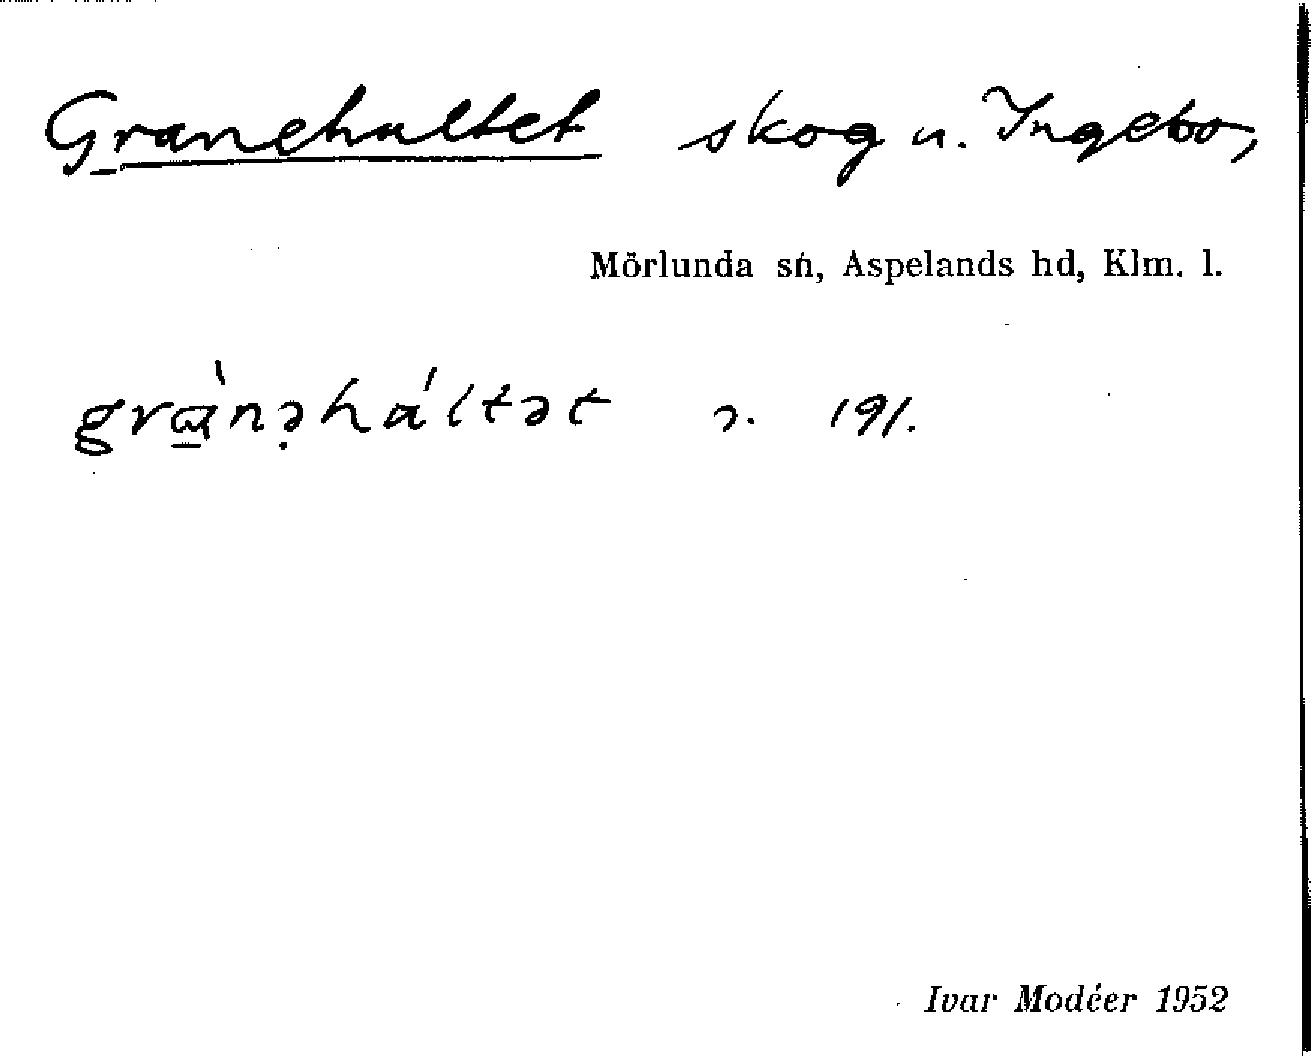 Granehultet skog u. Ingebo,
Mörlunda sn, Aspelands hd, Klm. l.
grà̱nə̣háltət ɔ. 191.
Ivar Modéer 1952